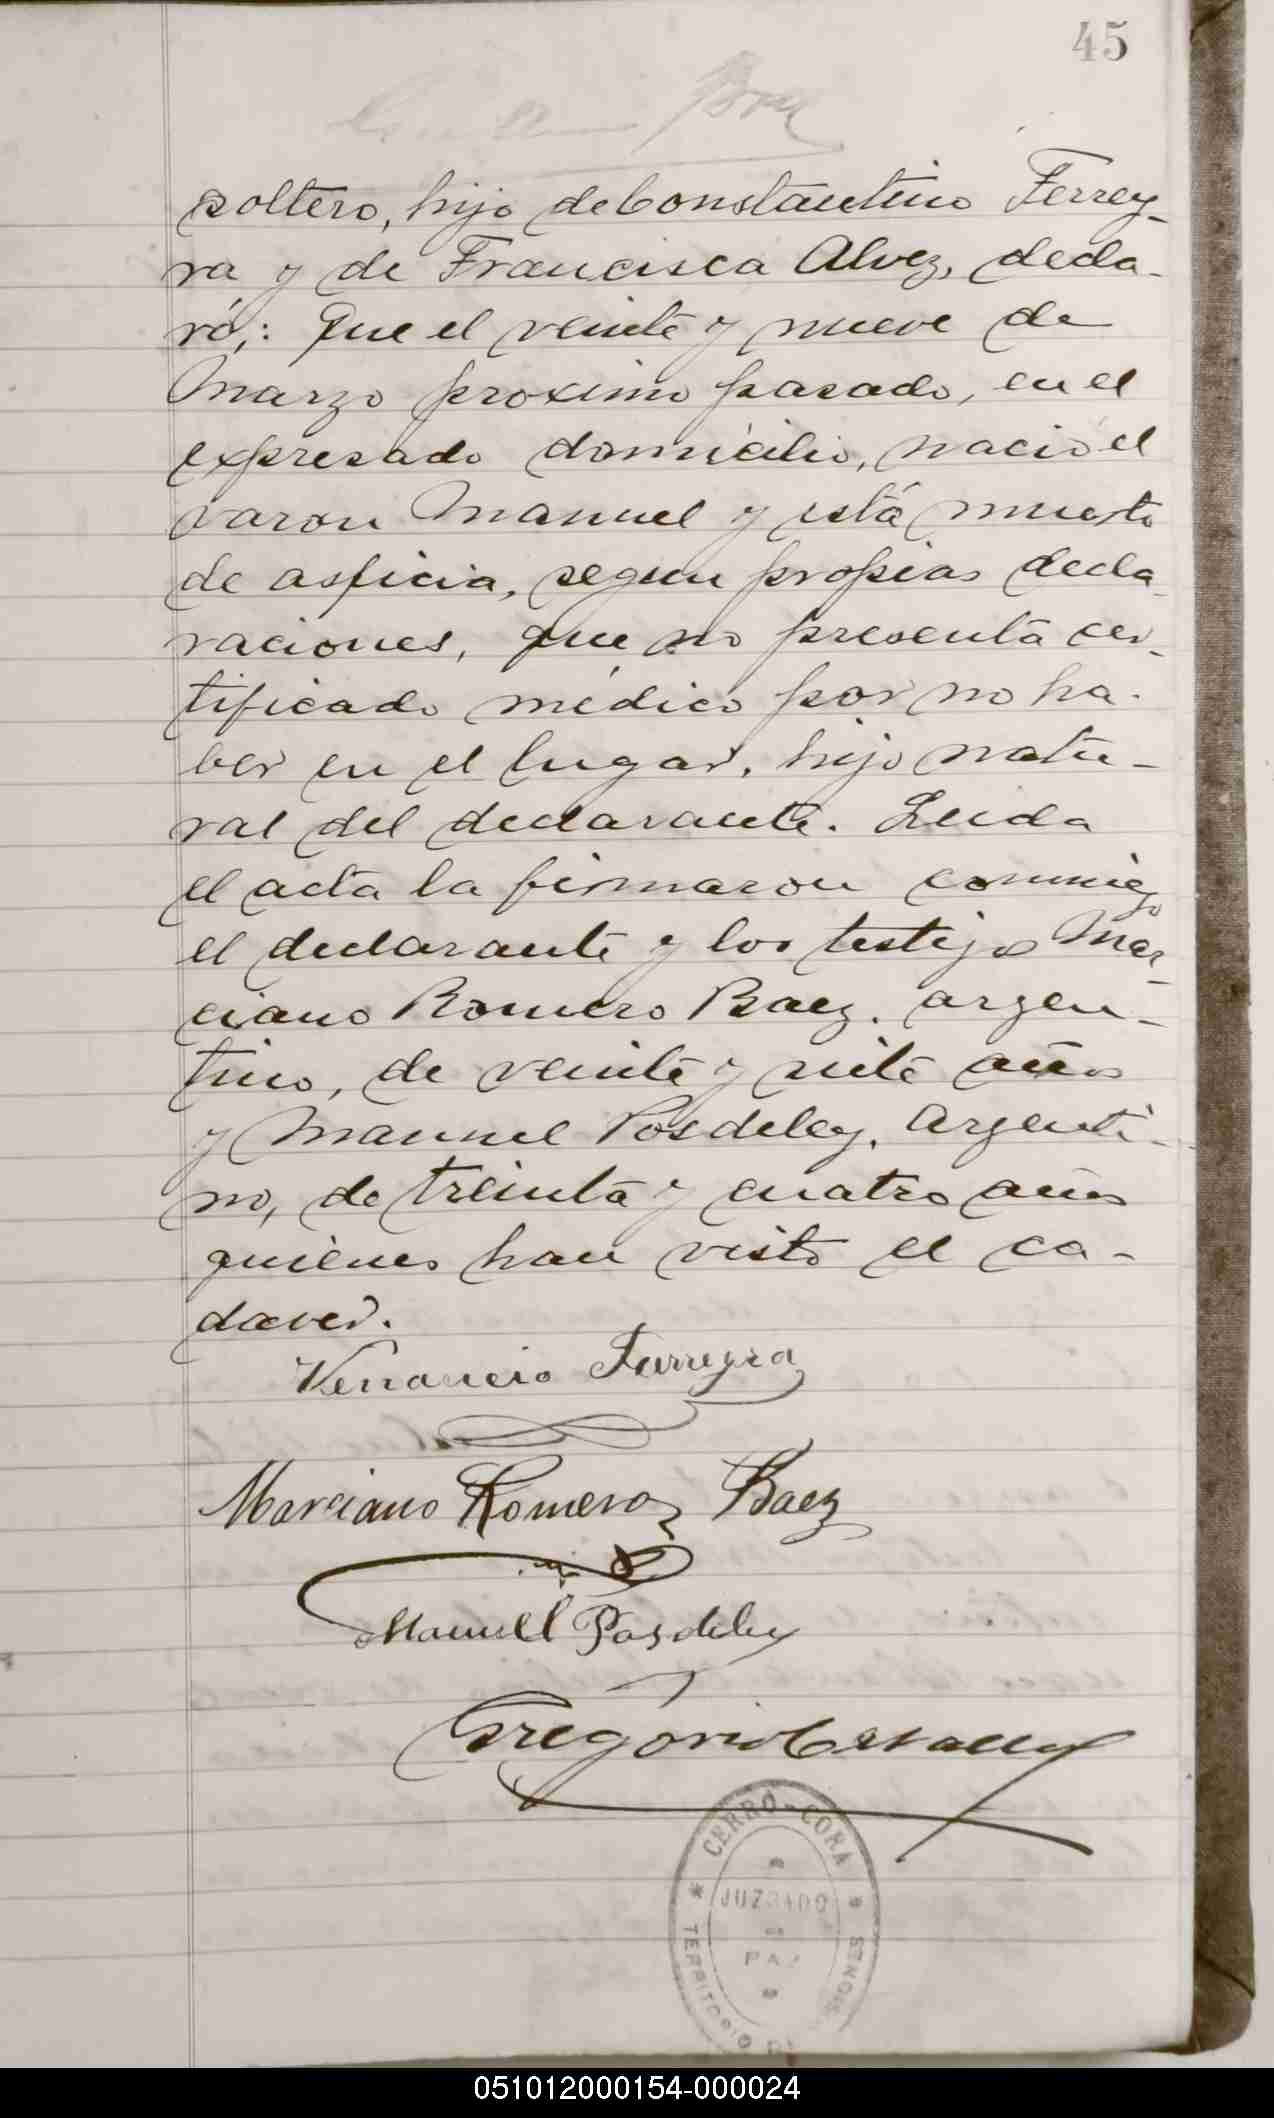 45
soltero, hijo de Constantino Ferrey-
ra y de Francisca Alvez, decla-
ró,: Que el veinte y nueve de
Marzo proximo pasado, en el
expresado domicilio, nació el
varon Manuel y está muerto
de asficia, segun propias decla-
raciones, que no presenta cer-
tificado médico por no ha-
ber en el lugar, hijo natu-
ral del declarante. Leida
el acta la firmaron conmigo
el declarante y los testigos Mar-
ciano Romero Baez, argen-
tino, de veinte y siete años
y Manuel Posdeley, argenti-
no, de treinta y cuatro años
quienes han visto el ca-
daver.
Venancio Ferreyra
Marciano Romero Baez
Manuel Posdeley
Gregorio
CERRO-CORA
JUZGADO
DE
PAZ
TERRITORIO DE
051012000154-000024